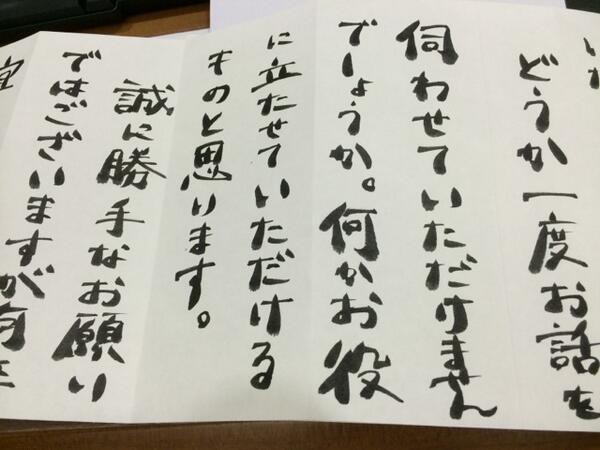 いた
どうか一度お話を
伺わせていただけません
でしょうか。何かお役
に立たせていただける
ものと思います。
誠に勝手なお願い
ではございますが何と
宜